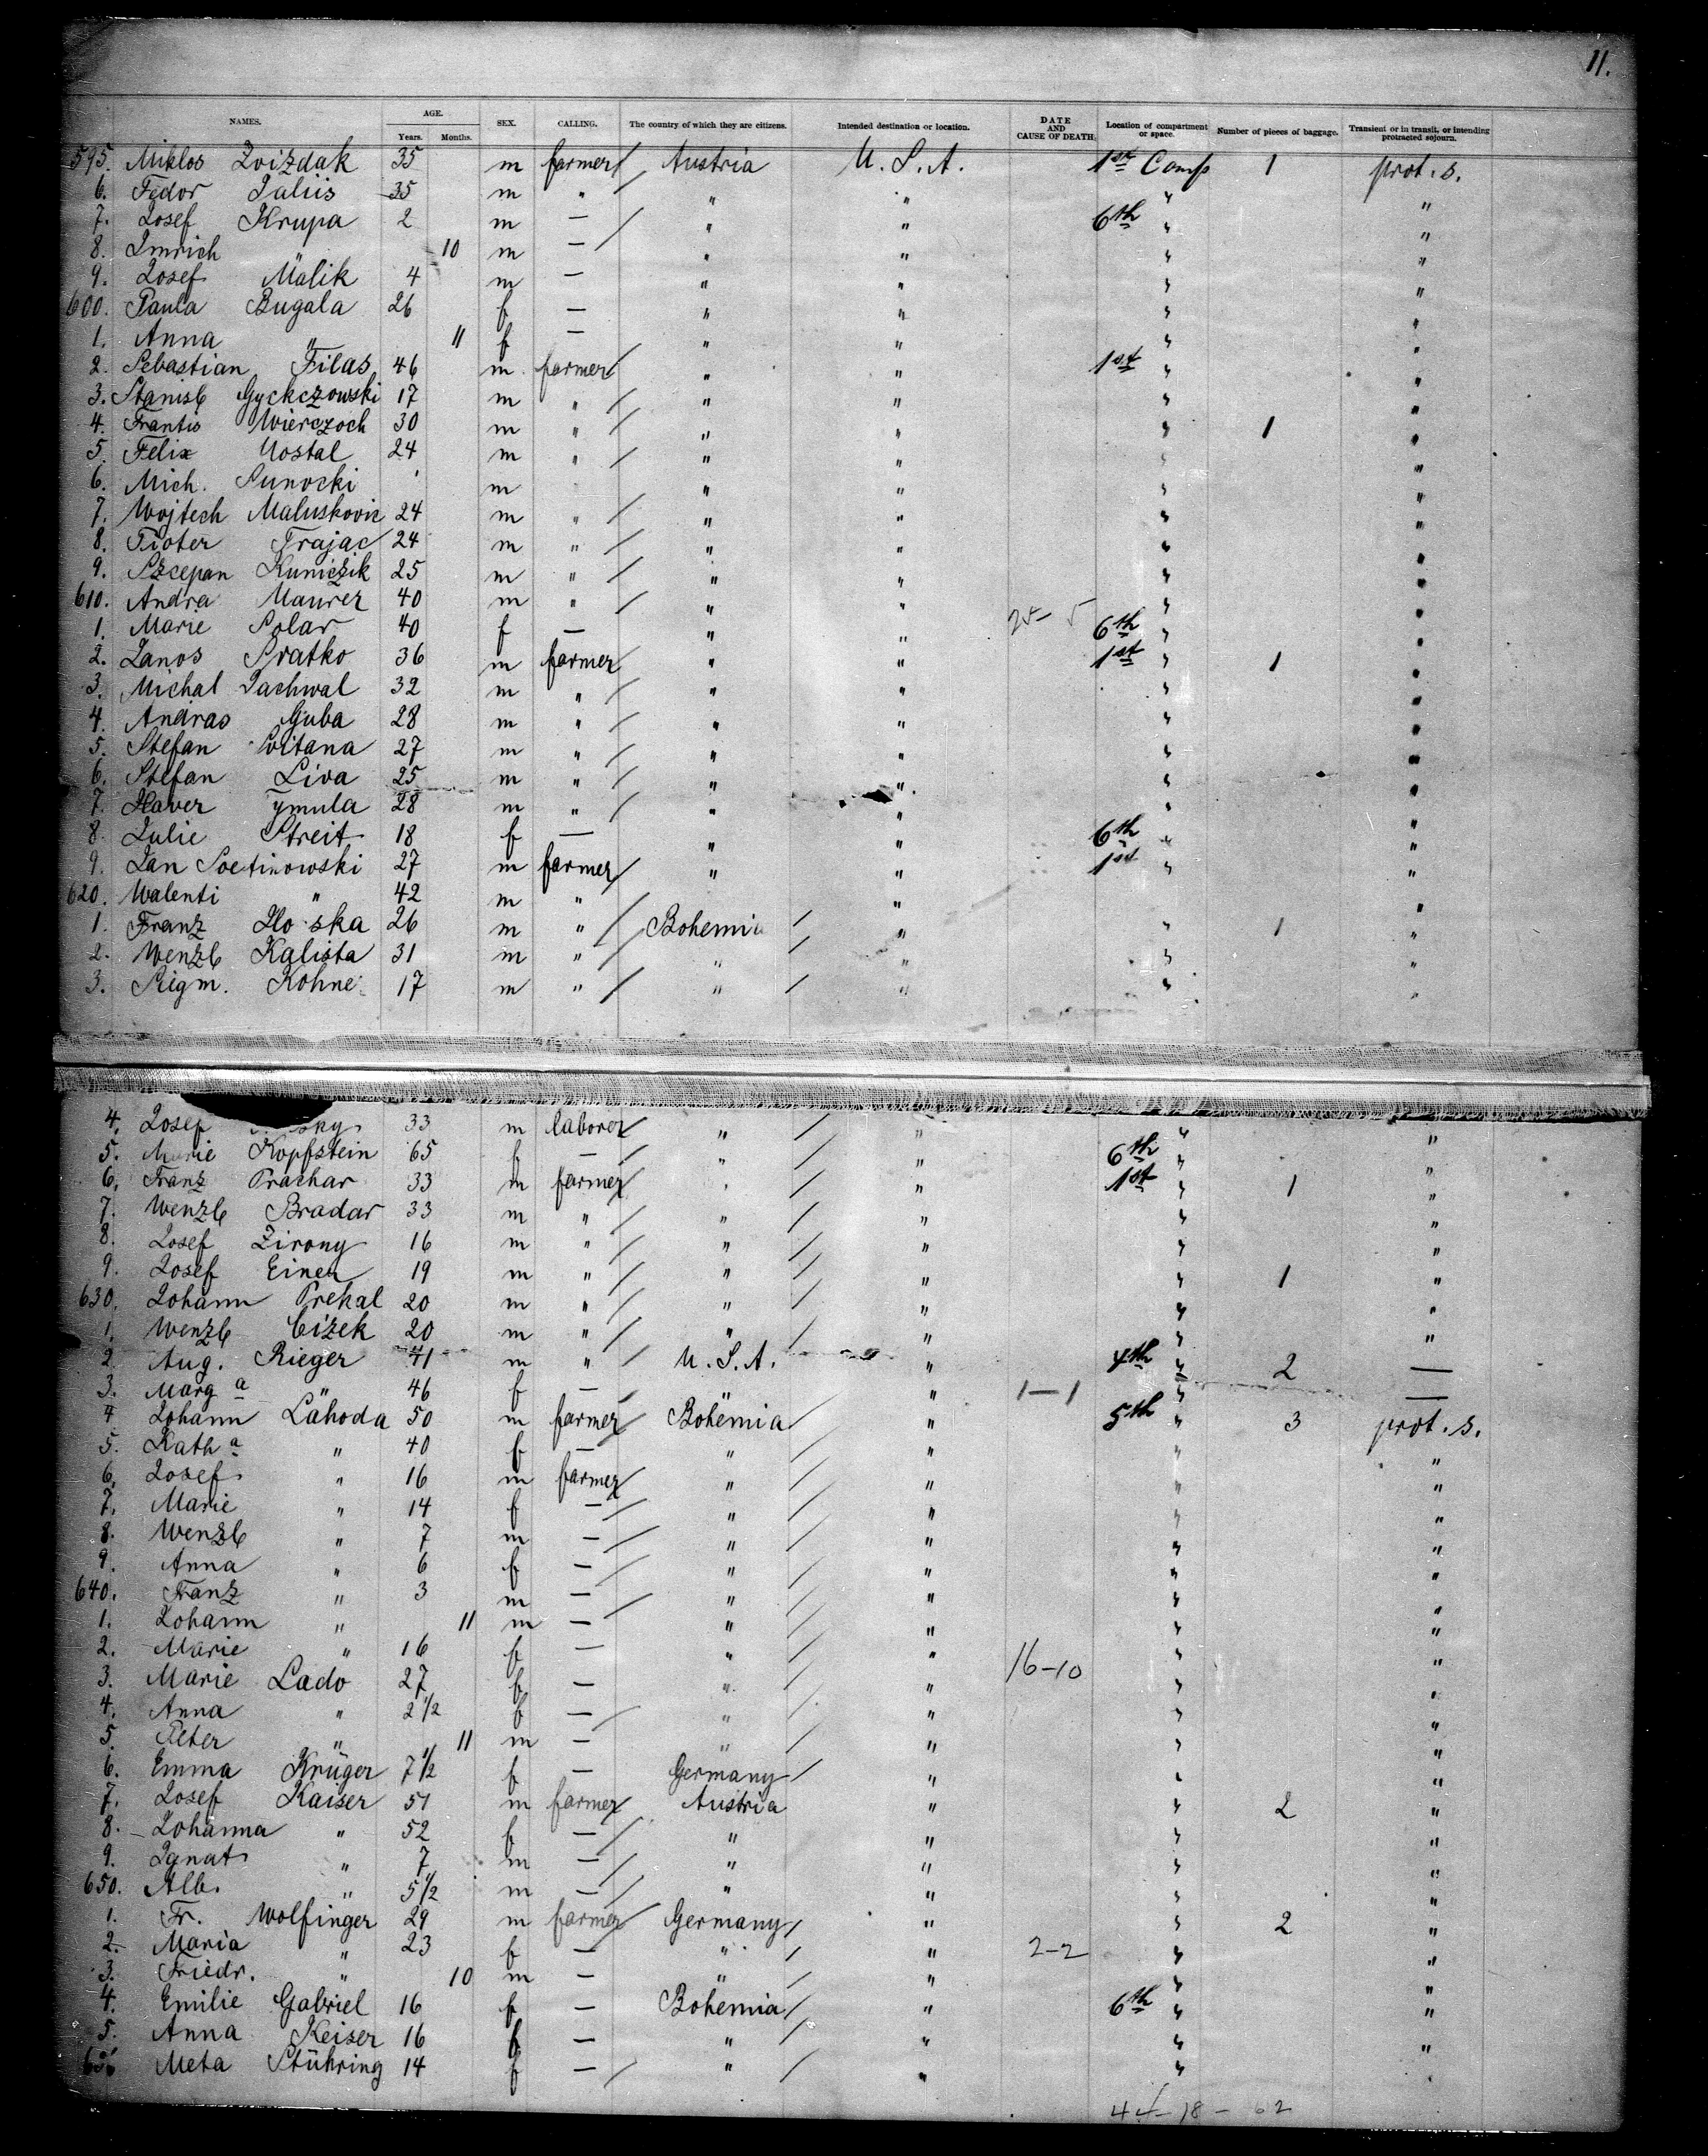 11.
NAMES. AGE. Years. Months. SEX. CALLING. The country of which they are citizens. Intended destination or location. DATE AND CAUSE OF DEATH. Location of compartment or space. Number of pieces of baggage. Transient or in transit, or intending protracted sojourn.
595. Miklos Zvizdak 35 m farmer Austria U.S.A. 1st Comp 1 prot. s.
6. Fedor Juliis 35 m " " " " "
7. Josef Krupa 2 m — " " 6th " "
8. Imrich " 10 m — " " " "
9. Josef Malik 4 m — " " " "
600. Paula Bugala 26 f — " " " "
1. Anna " 11 f — " " " "
2. Sebastian Filas 46 m farmer " " 1st " "
3. Stanisl Gyckczowski 17 m " " " " "
4. Frantis Wierczoch 30 m " " " " 1 "
5. Felix Uostal 24 m " " " " "
6. Mich. Sunocki m " " " "
7. Wojtech Maluskovic 24 m " " " " "
8. Pioter Trajac 24 m " " " " "
9. Szcepan Kuniczik 25 m " " " " "
610. Andra Maurer 40 m " " " " "
1. Marie Solar 40 f — " " 25- 5 6th " "
2. Janos Sratko 36 m farmer " " 1st " 1 "
3. Michal Jachwal 32 m " " " " "
4. Andras Guba 28 m " " " " "
5. Stefan Svitana 27 m " " " " "
6. Stefan Liva 25 m " " " " "
7. Xaver Tymula 28 m " " " " "
8. Julie Streit 18 f — " " 6th " "
9. Jan Soetinowski 27 m farmer " " 1st " "
620. Walenti " 42 m " " " "
1. Franz Ho ska 26 m " Bohemia " " 1 "
2. Wenzl Kalista 31 m " " " " "
3. Sigm. Kohne 17 m " " " " "
4. Josef sky 33 m laborer " " " "
5. Marie Kopfstein 65 f — " " 6th " "
6. Franz Prachar 33 m farmer " " 1st " 1 "
7. Wenzl Bradar 33 m " " " " "
8. Josef Zirony 16 m " " " " "
9. Josef Einer 19 m " " " " 1 "
630. Johann Prekal 20 m " " " " "
1. Wenzl Cizek 20 m " " " " "
2. Aug. Rieger 41 m " U.S.A. " 4th " 2 —
3. Marg a " 46 f — " " 1—1 " —
4 Johann Lahoda 50 m farmer Bohemia " 5th " 3 prot. s.
5. Kath a " 40 f — " " " "
6. Josef " 16 m farmer " " " "
7. Marie " 14 f — " " " "
8. Wenzl " 7 m — " " " "
9. Anna " 6 f — " " " "
640. Franz " 3 m — " " " "
1. Johann " 11 m — " " " "
2. Marie " 16 f — " " " "
3. Marie Lado 27 f — " " 16-10 " "
4. Anna " 2 1/2 f — " " " "
5. Peter " 11 m — " " " "
6. Emma Krüger 7 1/2 f — Germany " " "
7. Josef Kaiser 51 m farmer Austria " " 2 "
8. Johanna " 52 f — " " " "
9. Ignat " 7 m — " " " "
650. Alb. " 5 1/2 m — " " " "
1. Fr. Wolfinger 29 m farmer Germany " " 2 "
2. Maria " 23 f — " " 2-2 " "
3. Friedr. " 10 m — " " " "
4. Emilie Gabriel 16 f — Bohemia " 6th " "
5. Anna Keiser 16 f — " " " "
656 Meta Stühring 14 f — " " "
44-18- 62